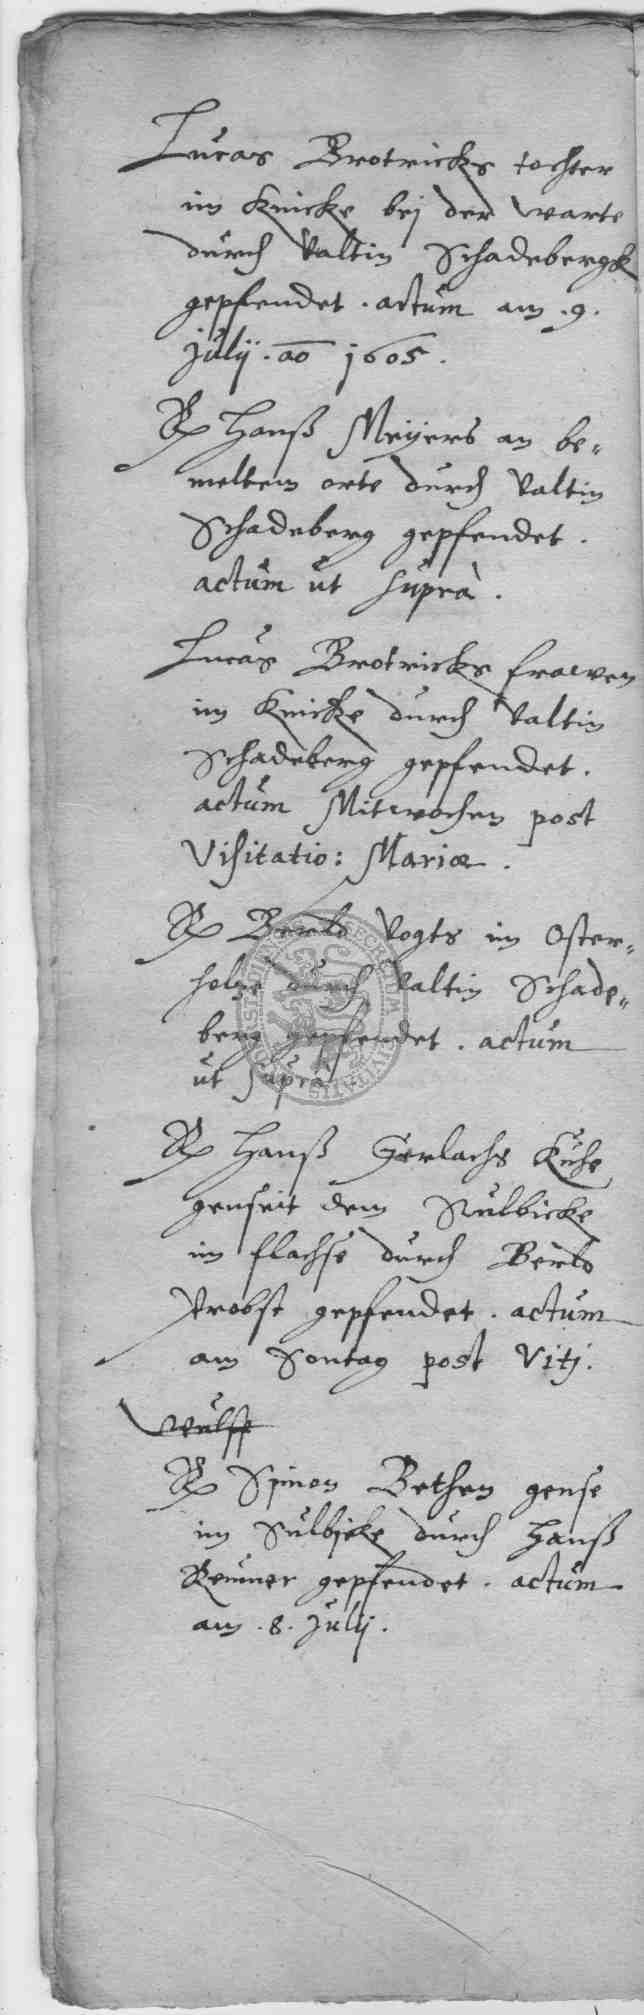 Lucas Brotricks tochter
im Knicke bej der warte
durch Valtin Schadebergk
gepfendet . actum am .9.
Julij . ao 1605 .
Hanß Meÿers an be-
meltem orte durch Valtin
Schadeberg gepfendet .
actum ut supra .
Lucas Brotricks frawen
im Knicke durch Valtin
Schadeberg gepfendet .
actum Mitwochen post
Visitatio: Mariæ .
Berld Vogts im Oster-
holze durch Valtin Schade-
berg gepfendet . actum
ut supra
Hanß Gerlachs Kuhe
genseit dem Sulbicke
im flachse durch Berld
Probst gepfendet . actum
am Sontag post Vitj .
Wulff
Simon Bethen gense
im Sulbicke durch Hanß
Reumer gepfendet . actum
am .8. Julij .